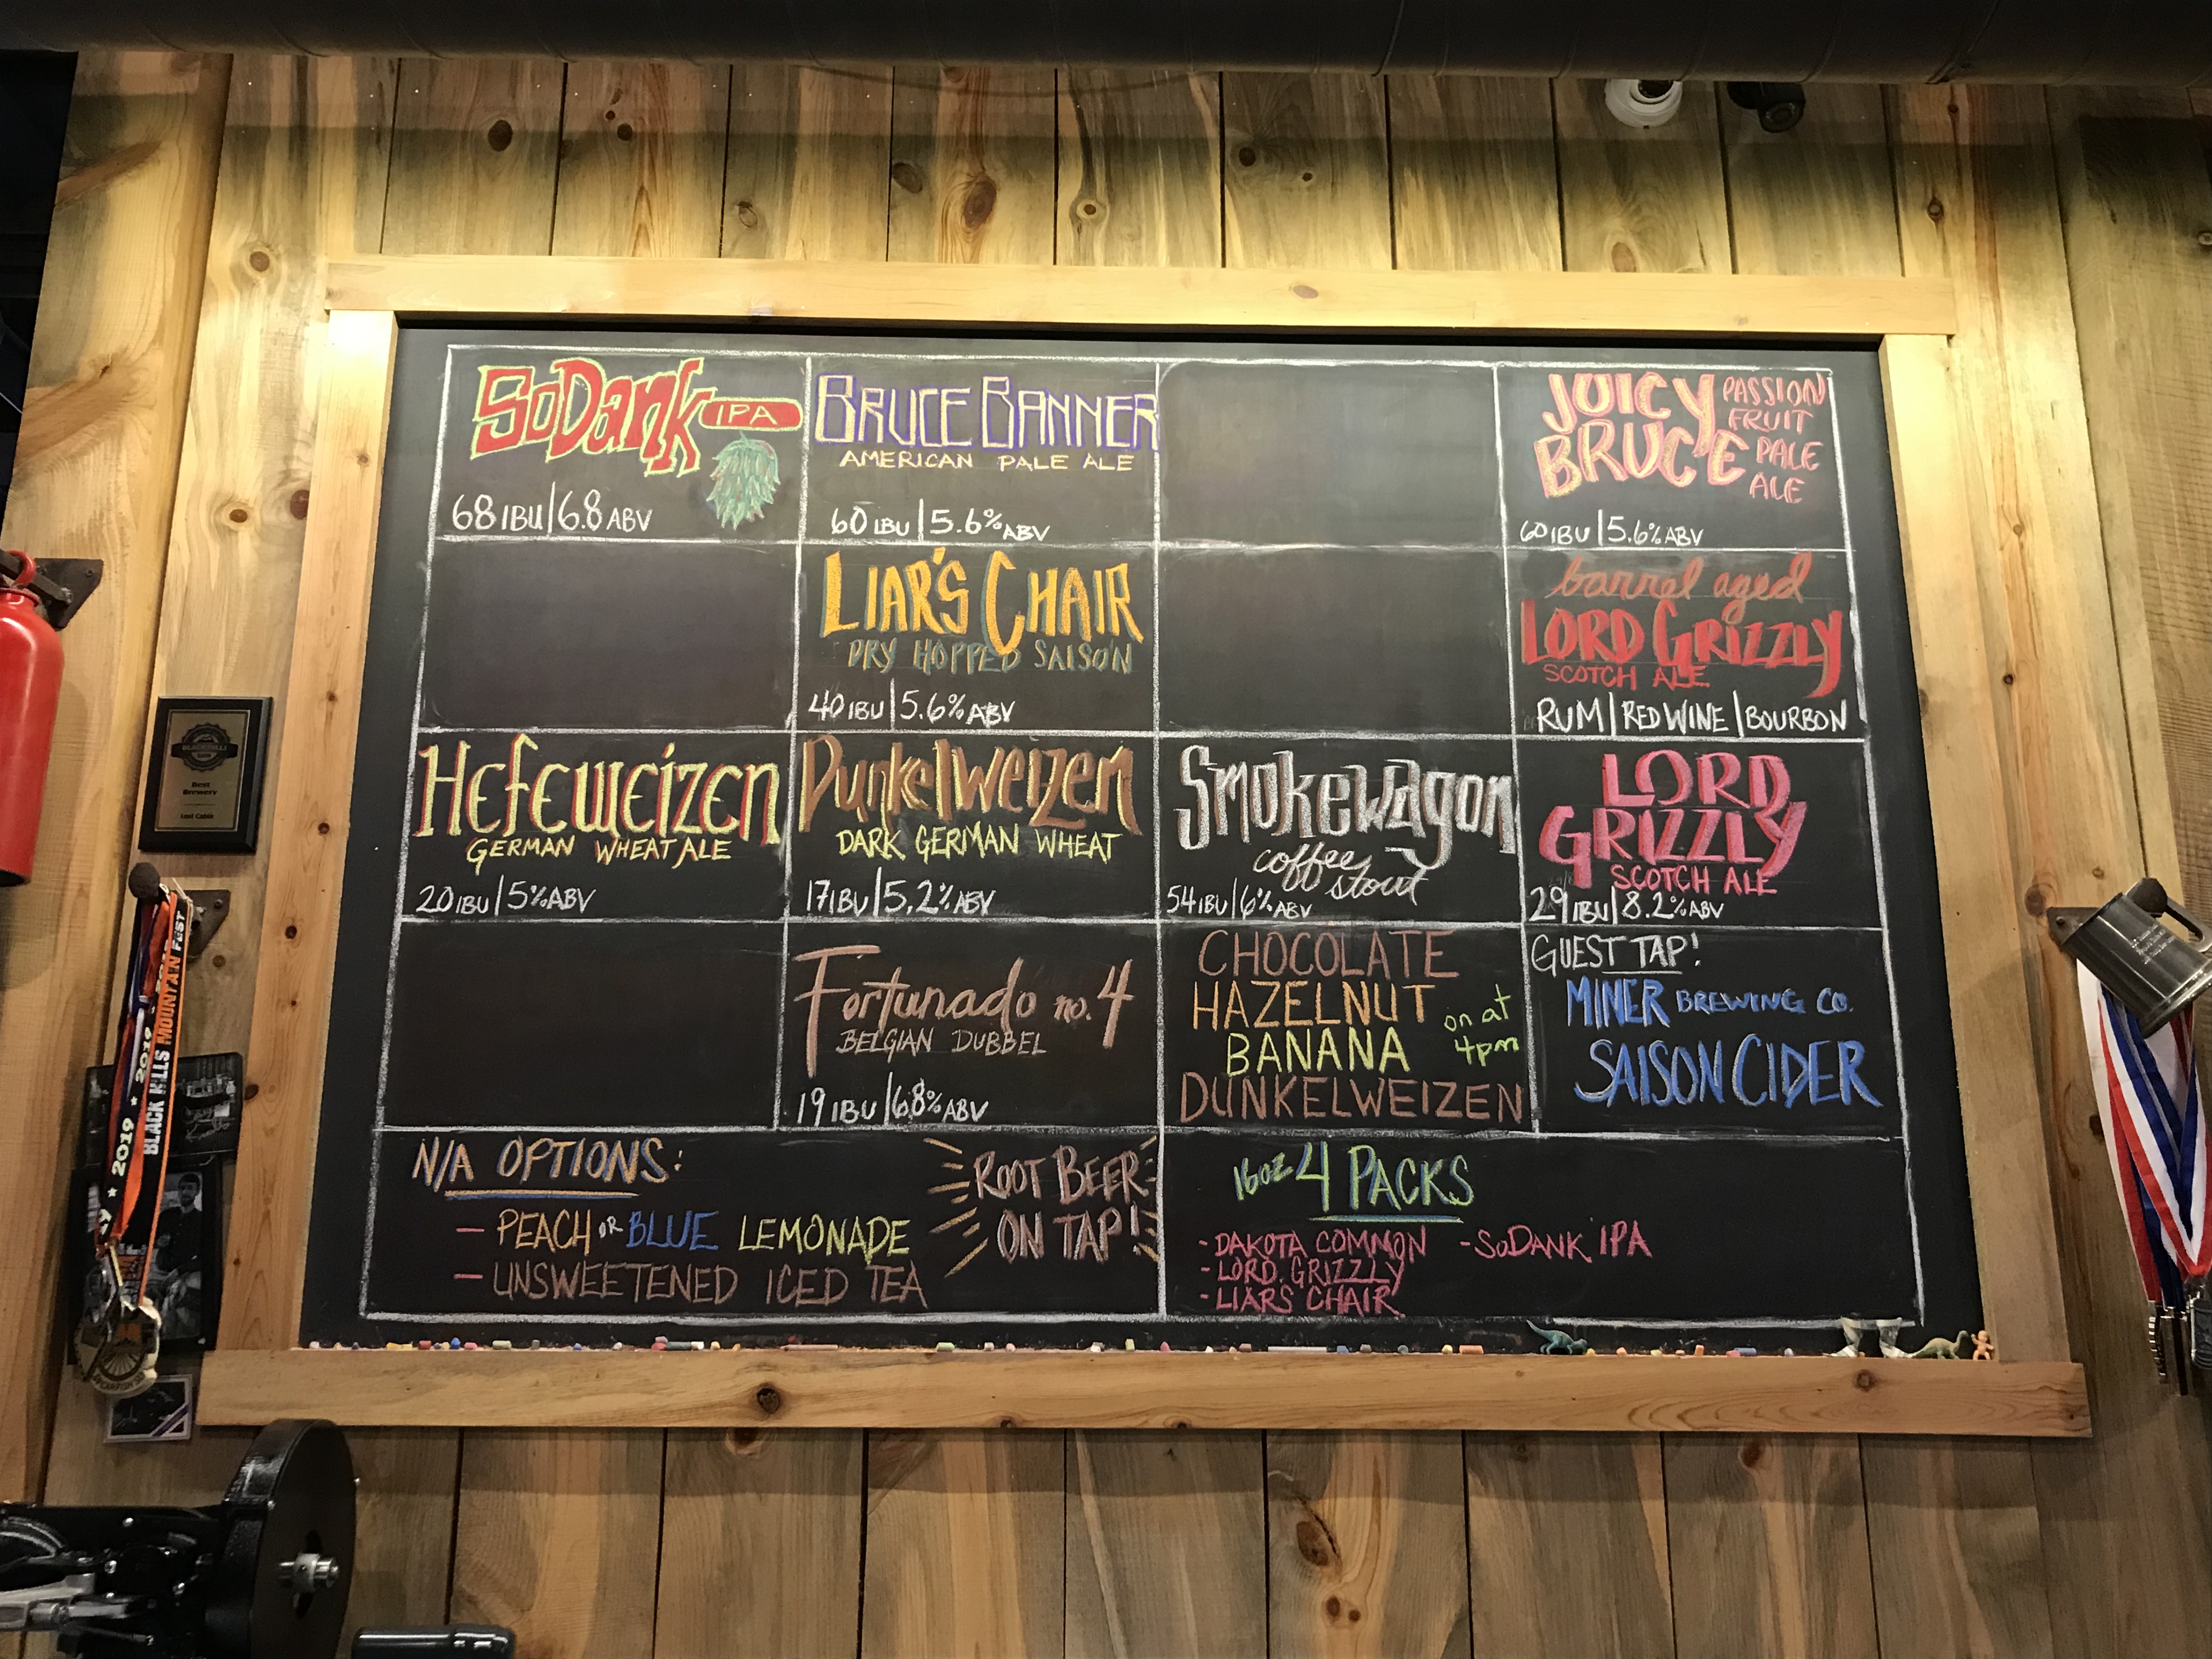 SoDank IPA
68 IBU | 6.8 ABV
BRUCE BANNER
AMERICAN PALE ALE
60 IBU | 5.6% ABV
JUICY BRUCE
PASSION
FRUIT
PALE
ALE
60 IBU | 5.6% ABV
LIAR'S CHAIR
DRY HOPPED SAISON
40 IBU | 5.6% ABV
barrel aged
LORD GRIZZLY
SCOTCH ALE
RUM | RED WINE | BOURBON
Hefeweizen
GERMAN WHEAT ALE
20 IBU | 5% ABV
Dunkelweizen
DARK GERMAN WHEAT
17 IBU | 5.2% ABV
Smokewagon
coffee
stout
54 IBU | 6% ABV
LORD
GRIZZLY
SCOTCH ALE
29 IBU | 8.2% ABV
Fortunado no. 4
BELGIAN DUBBEL
19 IBU | 6.8% ABV
CHOCOLATE
HAZELNUT
BANANA
DUNKELWEIZEN
on at
4pm
GUEST TAP!
MINER BREWING CO.
SAISON CIDER
N/A OPTIONS:
- PEACH OR BLUE LEMONADE
- UNSWEETENED ICED TEA
ROOT BEER
ON TAP!
16oz 4 PACKS
- DAKOTA COMMON - SoDANK IPA
- LORD GRIZZLY
- LIARS CHAIR
Best
Brewery
Lost Cabin
2019
BLACK HILLS MOUNTAIN FEST